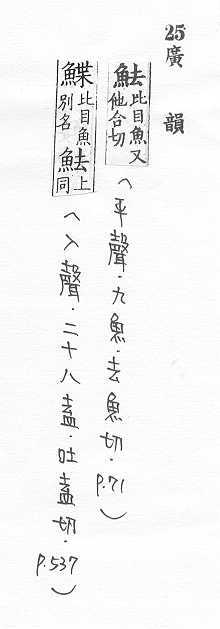 25廣韻
魼比目魚又他合切(平聲.九魚.去魚切.P.71)
鰈比目魚別名魼上同(入聲.二十八盍.吐盍切.P.537)